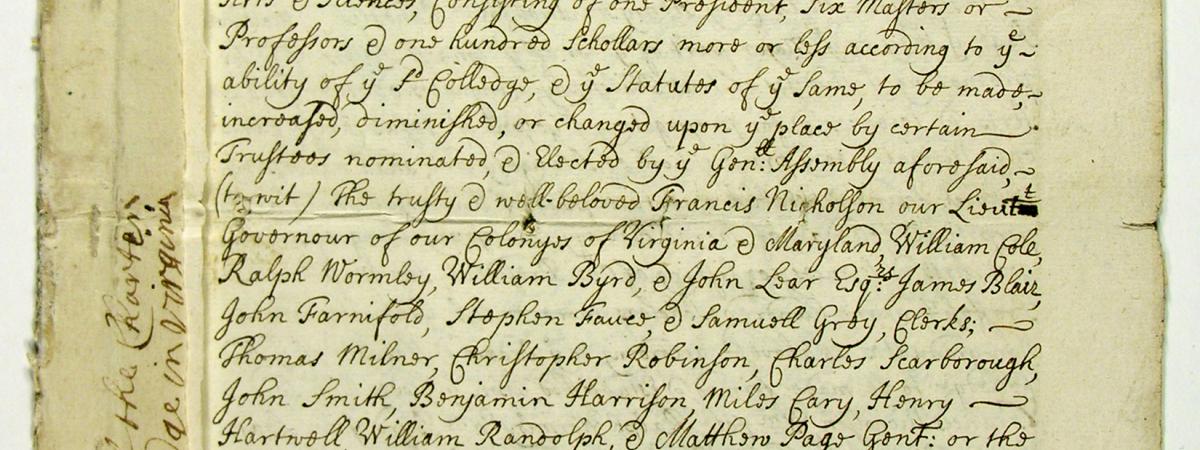 Arts & Sciences, Consisting of one President, Six Masters or
Professors & one hundred Schollars more or less according to yͤ
ability of yͤ sᵈ Colledge, & yͤ Statutes of yͤ Same, to be made,
increased, diminished, or changed upon yͤ place by certain
Trustees nominated, & Elected by yͤ Genˡˡ: Assembly aforesaid,
(to wit) The trusty & well-beloved Francis Nicholson our Lieuᵗ
Governour of our Colonyes of Virginia & Maryland, William Cole,
Ralph Wormley, William Byrd, & John Lear Esqʳˢ: James Blair,
John Farnifold, Stephen Fauce, & Samuell Grey, Clerks;
Thomas Milner, Christopher Robinson, Charles Scarborough,
John Smith, Benjamin Harrison, Miles Cary, Henry
Hartwell William Randolph, & Matthew Page Gent: or the
the Charter
in Virginia